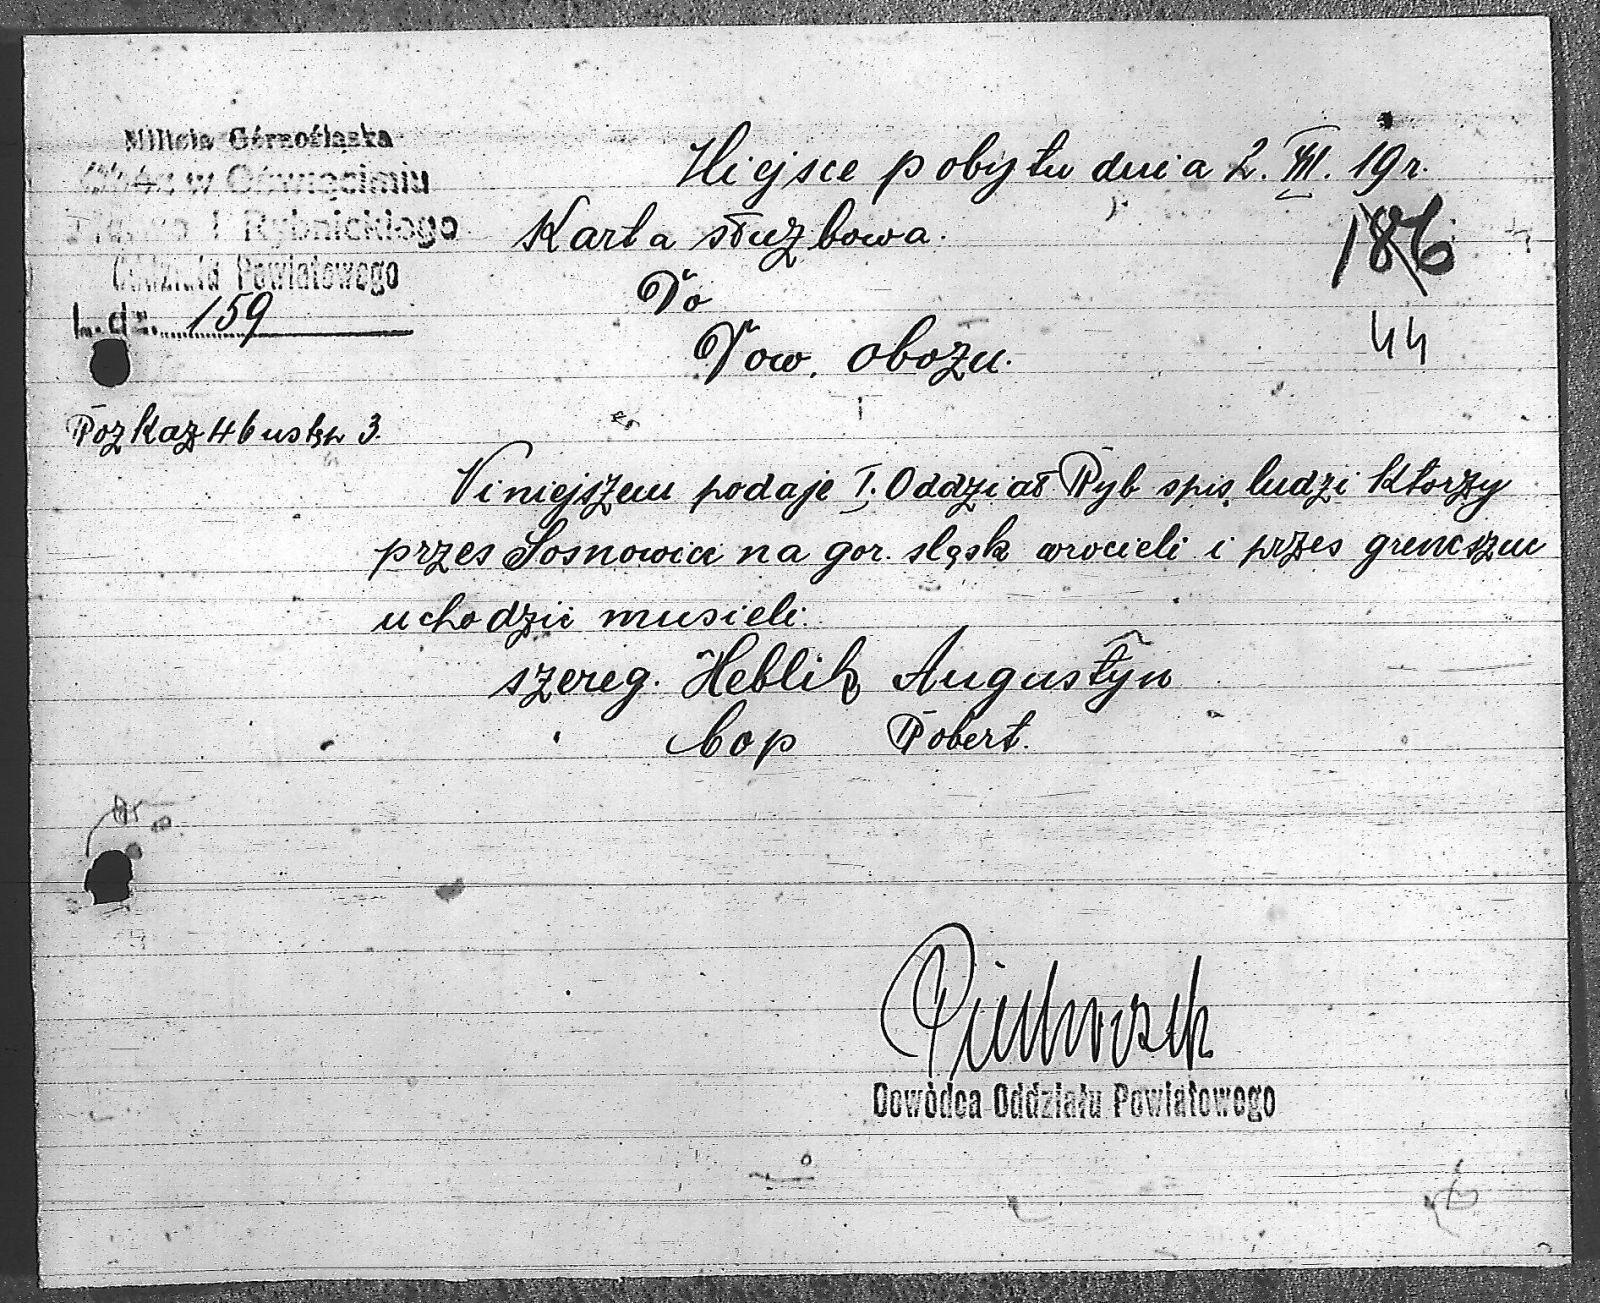 Milicja Górnośląska
w Oświęcimiu
I Rybnickiego
Oddziału Powiatowego
L. dz. 159
Miejsce pobytu dnia 2. VIII. 19 r.
Karta służbowa.
186
Do
44
Dow. obozu.
Rozkaz 46 ustęp 3.
Niniejszem podaje I. Oddział Ryb spis ludzi ktorzy
przes Sosnowice na gor. sląsk wrocieli i przes grencszue
uchodzić musieli:
szereg. Heblik Augustyn
Cop Robert.
Dowódca Oddziału Powiatowego